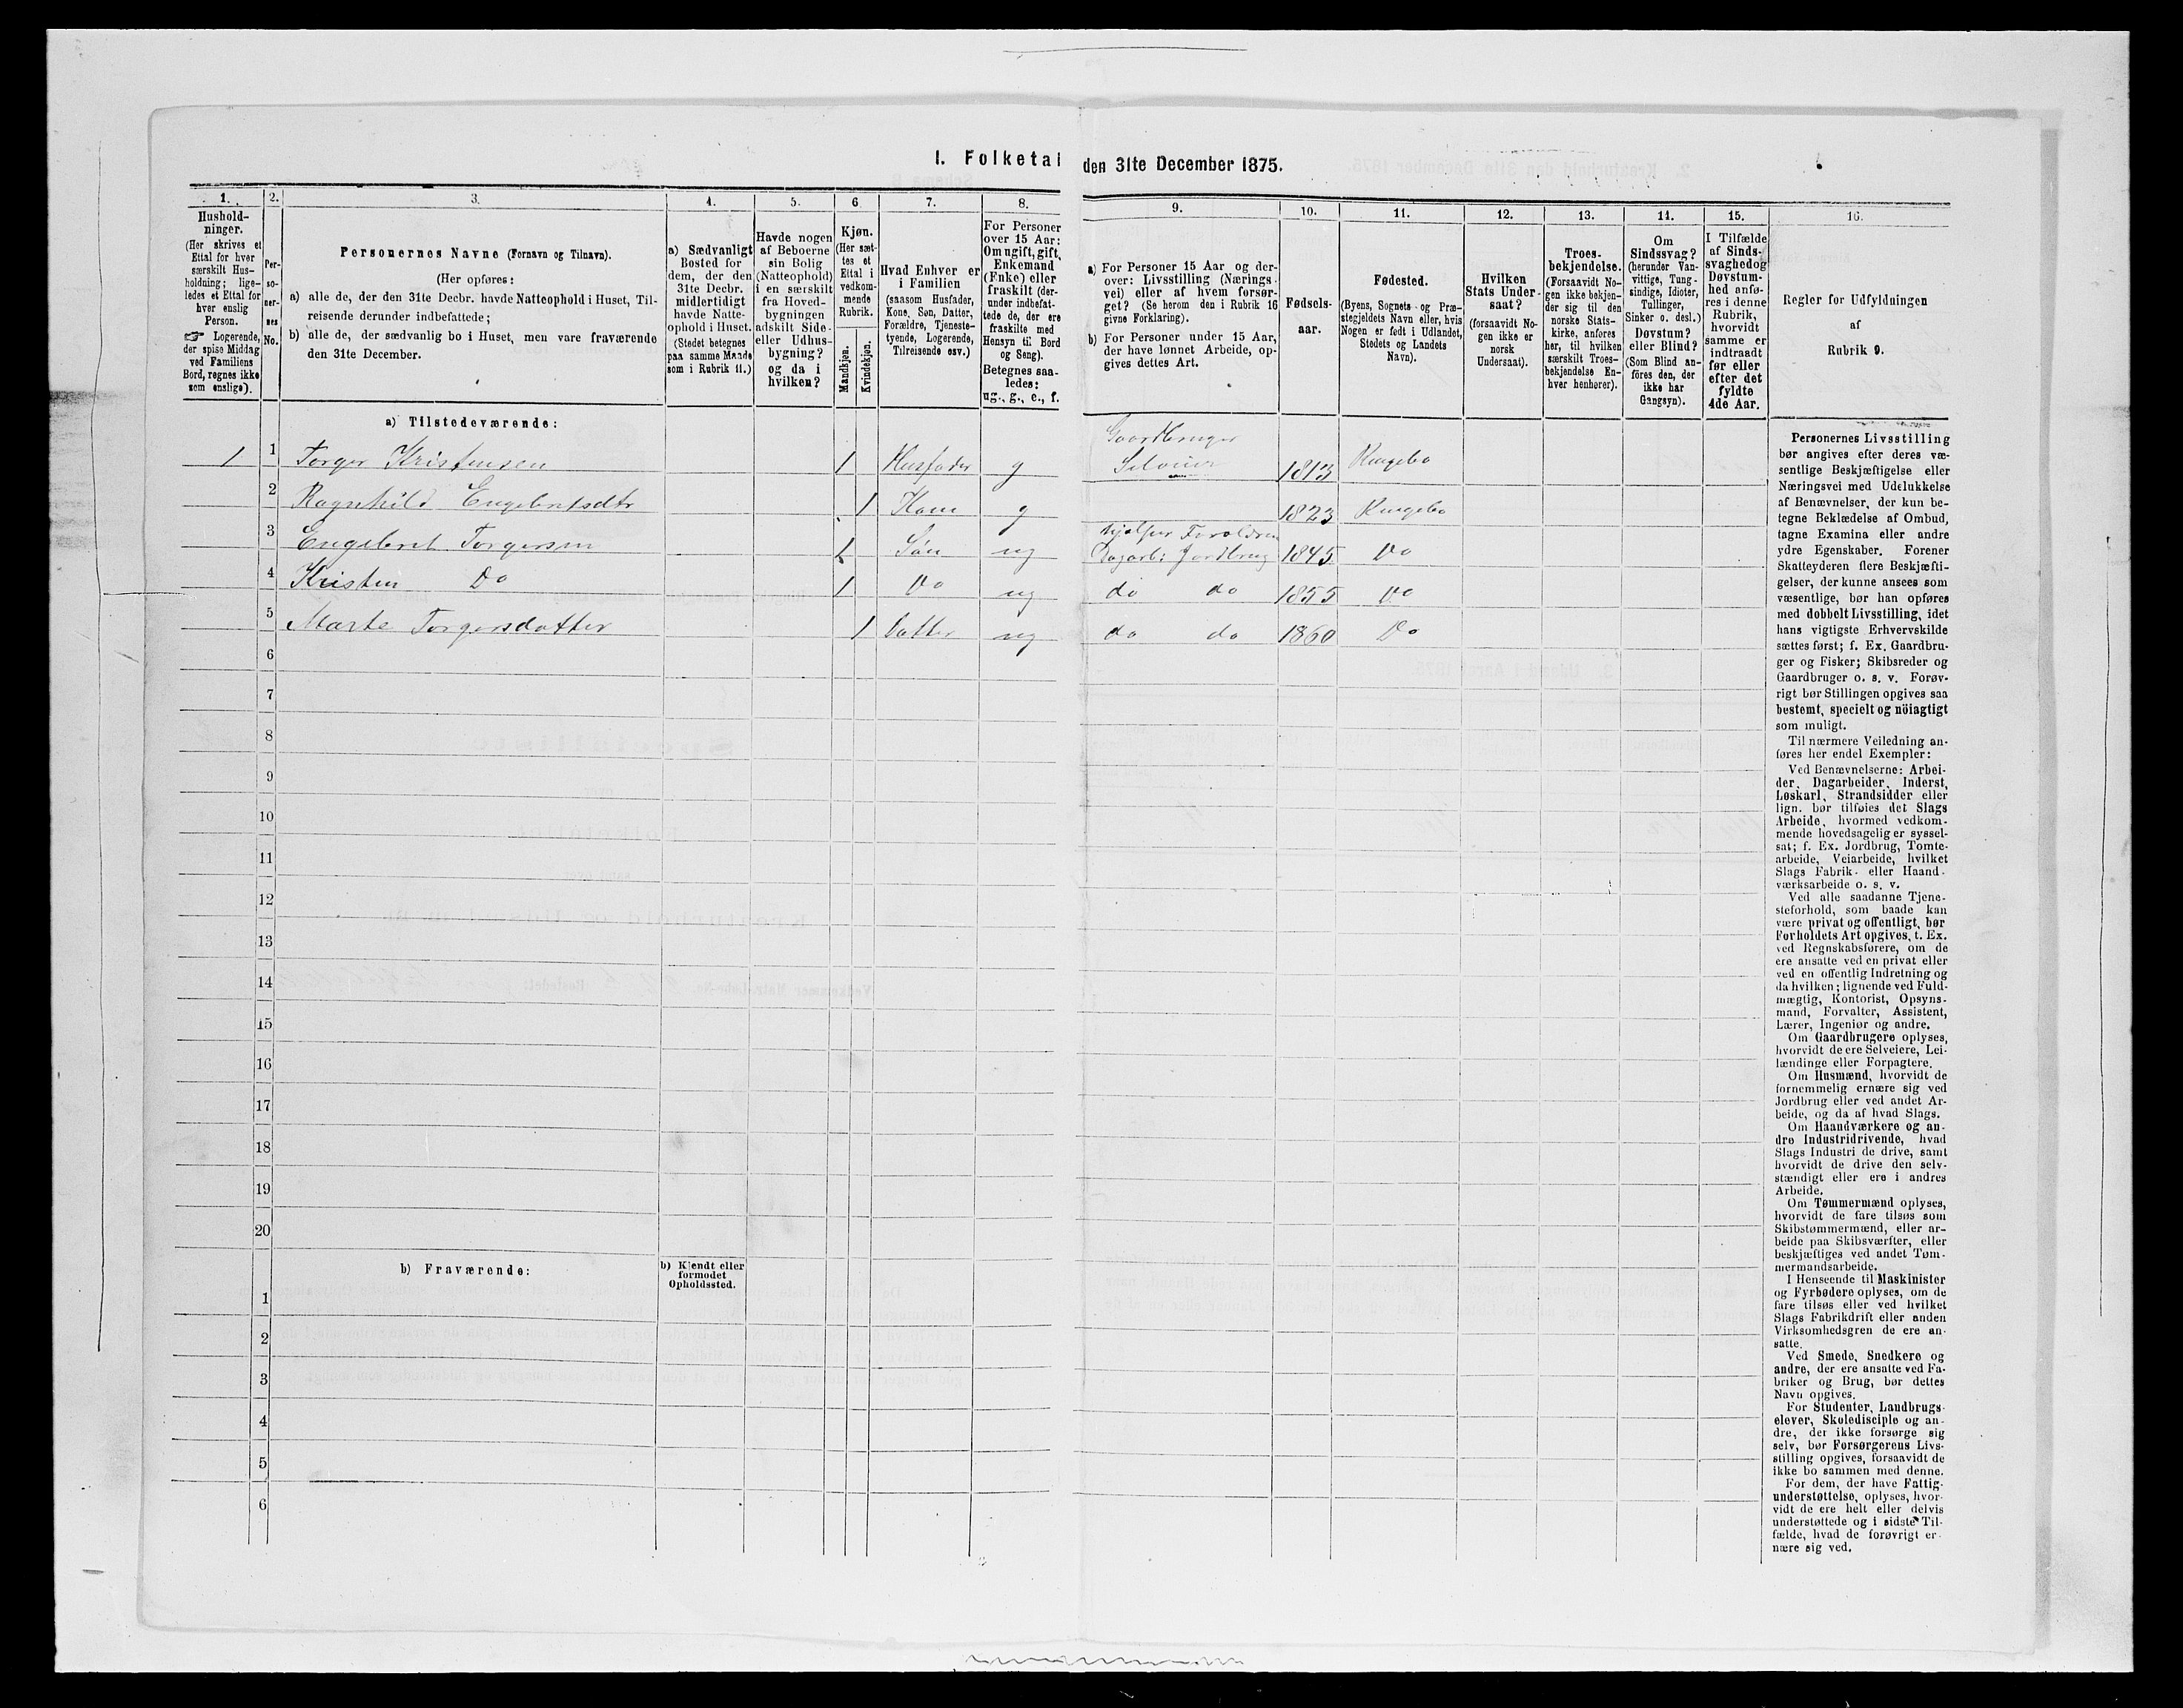 I. Folketal den 31te December 1875.
1. 2. 3. 4. 5. 6 7. 8. 9. 10. 11. 12. 13. 14. 15. 16.
Hushold-
ninger.
(Her skrives et
Ettal for hver
særskilt Hus-
holdning; lige-
ledes et Ettal for
hver enslig
Person.
☞ Logerende,
der spise Middag
ved Familiens
Bord, regnes ikke
som enslige).
Per-
so-
ner-
nes
No.
Personernes Navne (Fornavn og Tilnavn).
(Her opføres:
a) alle de, der den 31te Decbr. havde Natteophold i Huset, Til-
reisende derunder indbefattede;
b) alle de, der sædvanlig bo i Huset, men vare fraværende
den 31te December.
a) Sædvanligt
Bosted for
dem, der den
31te Decbr.
midlertidigt
havde Natte-
ophold i Huset.
(Stedet betegnes
paa samme Maade
som i Rubrik 11.)
Havde nogen
af Beboerne
sin Bolig
(Natteophold)
i en særskilt
fra Hoved-
bygningen
adskilt Side-
eller Udhus-
bygning?
og da i
hvilken?
Kjøn.
(Her sæt-
tes et
Ettal i
vedkom-
mende
Rubrik.
Mandkjøn.
Kvindekjøn.
Hvad Enhver er
i Familien
(saasom Husfader,
Kone, Søn, Datter,
Forældre, Tjeneste-
tyende, Logerende,
Tilreisende osv.)
For Personer
over 15 Aar:
Om ugift, gift,
Enkemand
(Enke) eller
fraskilt (der-
under indbefat-
tede de, der ere
fraskilte med
Hensyn til Bord
og Seng).
Betegnes saa-
ledes:
ug., g., e., f.
a) For Personer 15 Aar og der-
over: Livsstilling (Nærings-
vei) eller af hvem forsør-
get? (Se herom den i Rubrik 16
givne Forklaring).
b) For Personer under 15 Aar,
der have lønnet Arbeide, op-
gives dettes Art.
Fødsels-
aar.
Fødested.
(Byens, Sognets- og Præ-
stegjeldets Navn eller, hvis
Nogen er født i Udlandet,
Stedets og Landets
Navn).
Hvilken
Stats Under-
saat?
(forsaavidt No-
gen ikke er
norsk
Undersaat).
Troes-
bekjendelse.
(Forsaavidt No-
gen ikke bekjen-
der sig til den
norske Stats-
kirke, anføres
her, til hvilken
særskilt Troes-
bekjendelse En-
hver henhører).
Om
Sindssvag?
(herunder Van-
vittige, Tung-
sindige, Idioter,
Tullinger,
Sinker o. desl.)
Døvstum?
eller Blind?
(Som Blind an-
føres den, der
ikke har
Gangsyn).
I Tilfælde
af Sinds-
svaghedog
Døvstum-
hed anfø-
res i denne
Rubrik,
hvorvidt
samme er
indtraadt
før eller
efter det
fyldte
4de Aar.
Regler for Udfyldningen
af
Rubrik 9.
a) Tilstedeværende:
Gaardbruger
1 1 Torger Kristensen 1 Husfader g Selveier 1813 Ringebo
2 Ragnhild Engebretsdtr 1 Kone g 1823 Ringebo
hjælper Forældrene
3 Engebret Torgersen 1 Søn ug Dagarb: Jordbrug 1845 Do
4 Kristen Do 1 Do ug do do 1855 Do
5 Marte Torgersdatter 1 Datter ug do do 1860 Do
6
7
8
9
10
11
12
13
14
15
16
17
18
19
20
b) Fraværende:
b) Kjendt eller
formodet
Opholdssted.
1
2
3
4
5
6
Personernes Livsstilling
bør angives efter deres væ-
sentlige Beskjæftigelse eller
Næringsvei med Udelukkelse
af Benævnelser, der kun be-
tegne Beklædelse af Ombud,
tagne Examina eller andre
ydre Egenskaber. Forener
Skatteyderen flere Beskjæfti-
gelser, der kunne ansees som
væsentlige, bør han opføres
med dobbelt Livsstilling, idet
hans vigtigste Erhvervskilde
sættes først; f. Ex. Gaardbru-
ger og Fisker; Skibsreder og
Gaardbruger o. s. v. Forøv-
rigt bør Stillingen opgives saa
bestemt, specielt og nöiagtigt
som muligt.
Til nærmere Veiledning an-
føres her endel Exempler:
Ved Benævnelserne: Arbei-
der, Dagarbeider, Inderst,
Løskarl, Strandsidder eller
lign. bør tilføies det Slags
Arbeide, hvormed vedkom-
mende hovedsagelig er syssel-
sat; f. Ex. Jordbrug, Tomte-
arbeide, Veiarbeide, hvilket
Slags Fabrik- eller Haand-
værksarbeide o. s. v.
Ved alle saadanne Tjene-
steforhold, som baade kan
være privat og offentligt, bør
Forholdets Art opgives, t. Ex.
ved Regnskabsførere, om de
ere ansatte ved en privat eller
ved en offentlig Indretning og
da hvilken; lignende ved Fuld-
mægtig, Kontorist, Opsyns-
mand, Forvalter, Assistent,
Lærer, Ingeniør og andre.
Om Gaardbrugere oplyses,
hvorvidt de ere Selveiere, Lei-
lændinge eller Forpagtere.
Om Husmænd, hvorvidt de
fornemmelig ernære sig ved
Jordbrug eller ved andet Ar-
beide, og da af hvad Slags.
Om Haandværkere og an-
dre Industridrivende, hvad
Slags Industri de drive, samt
hvorvidt de drive den selv-
stændigt eller ere i andres
Arbeide.
Om Tømmermænd oplyses,
hvorvidt de fare tilsøs som
Skibstømmermænd, eller ar-
beide paa Skibsværfter, eller
beskjæftiges ved andet Tøm-
mermandsarbeide.
I Henseende til Maskinister
og Fyrbødere oplyses, om de
fare tilsøs eller ved hvilket
Slags Fabrikdrift eller anden
Virksomhedsgren de ere an-
satte.
Ved Smede, Snedkere og
andre, der ere ansatte ved Fa-
briker og Brug, bør dettes
Navn opgives.
For Studenter, Landbrugs-
elever, Skoledisciple og an-
dre, der ikke forsørge sig
selv, bør Forsørgerens Livs-
stilling opgives, forsaavidt de
ikke bo sammen med denne.
For dem, der have Fattig-
understøttelse, oplyses, hvor-
vidt de ere helt eller delvis
understøttede og i sidste Til-
fælde, hvad de forøvrigt er-
nære sig ved.